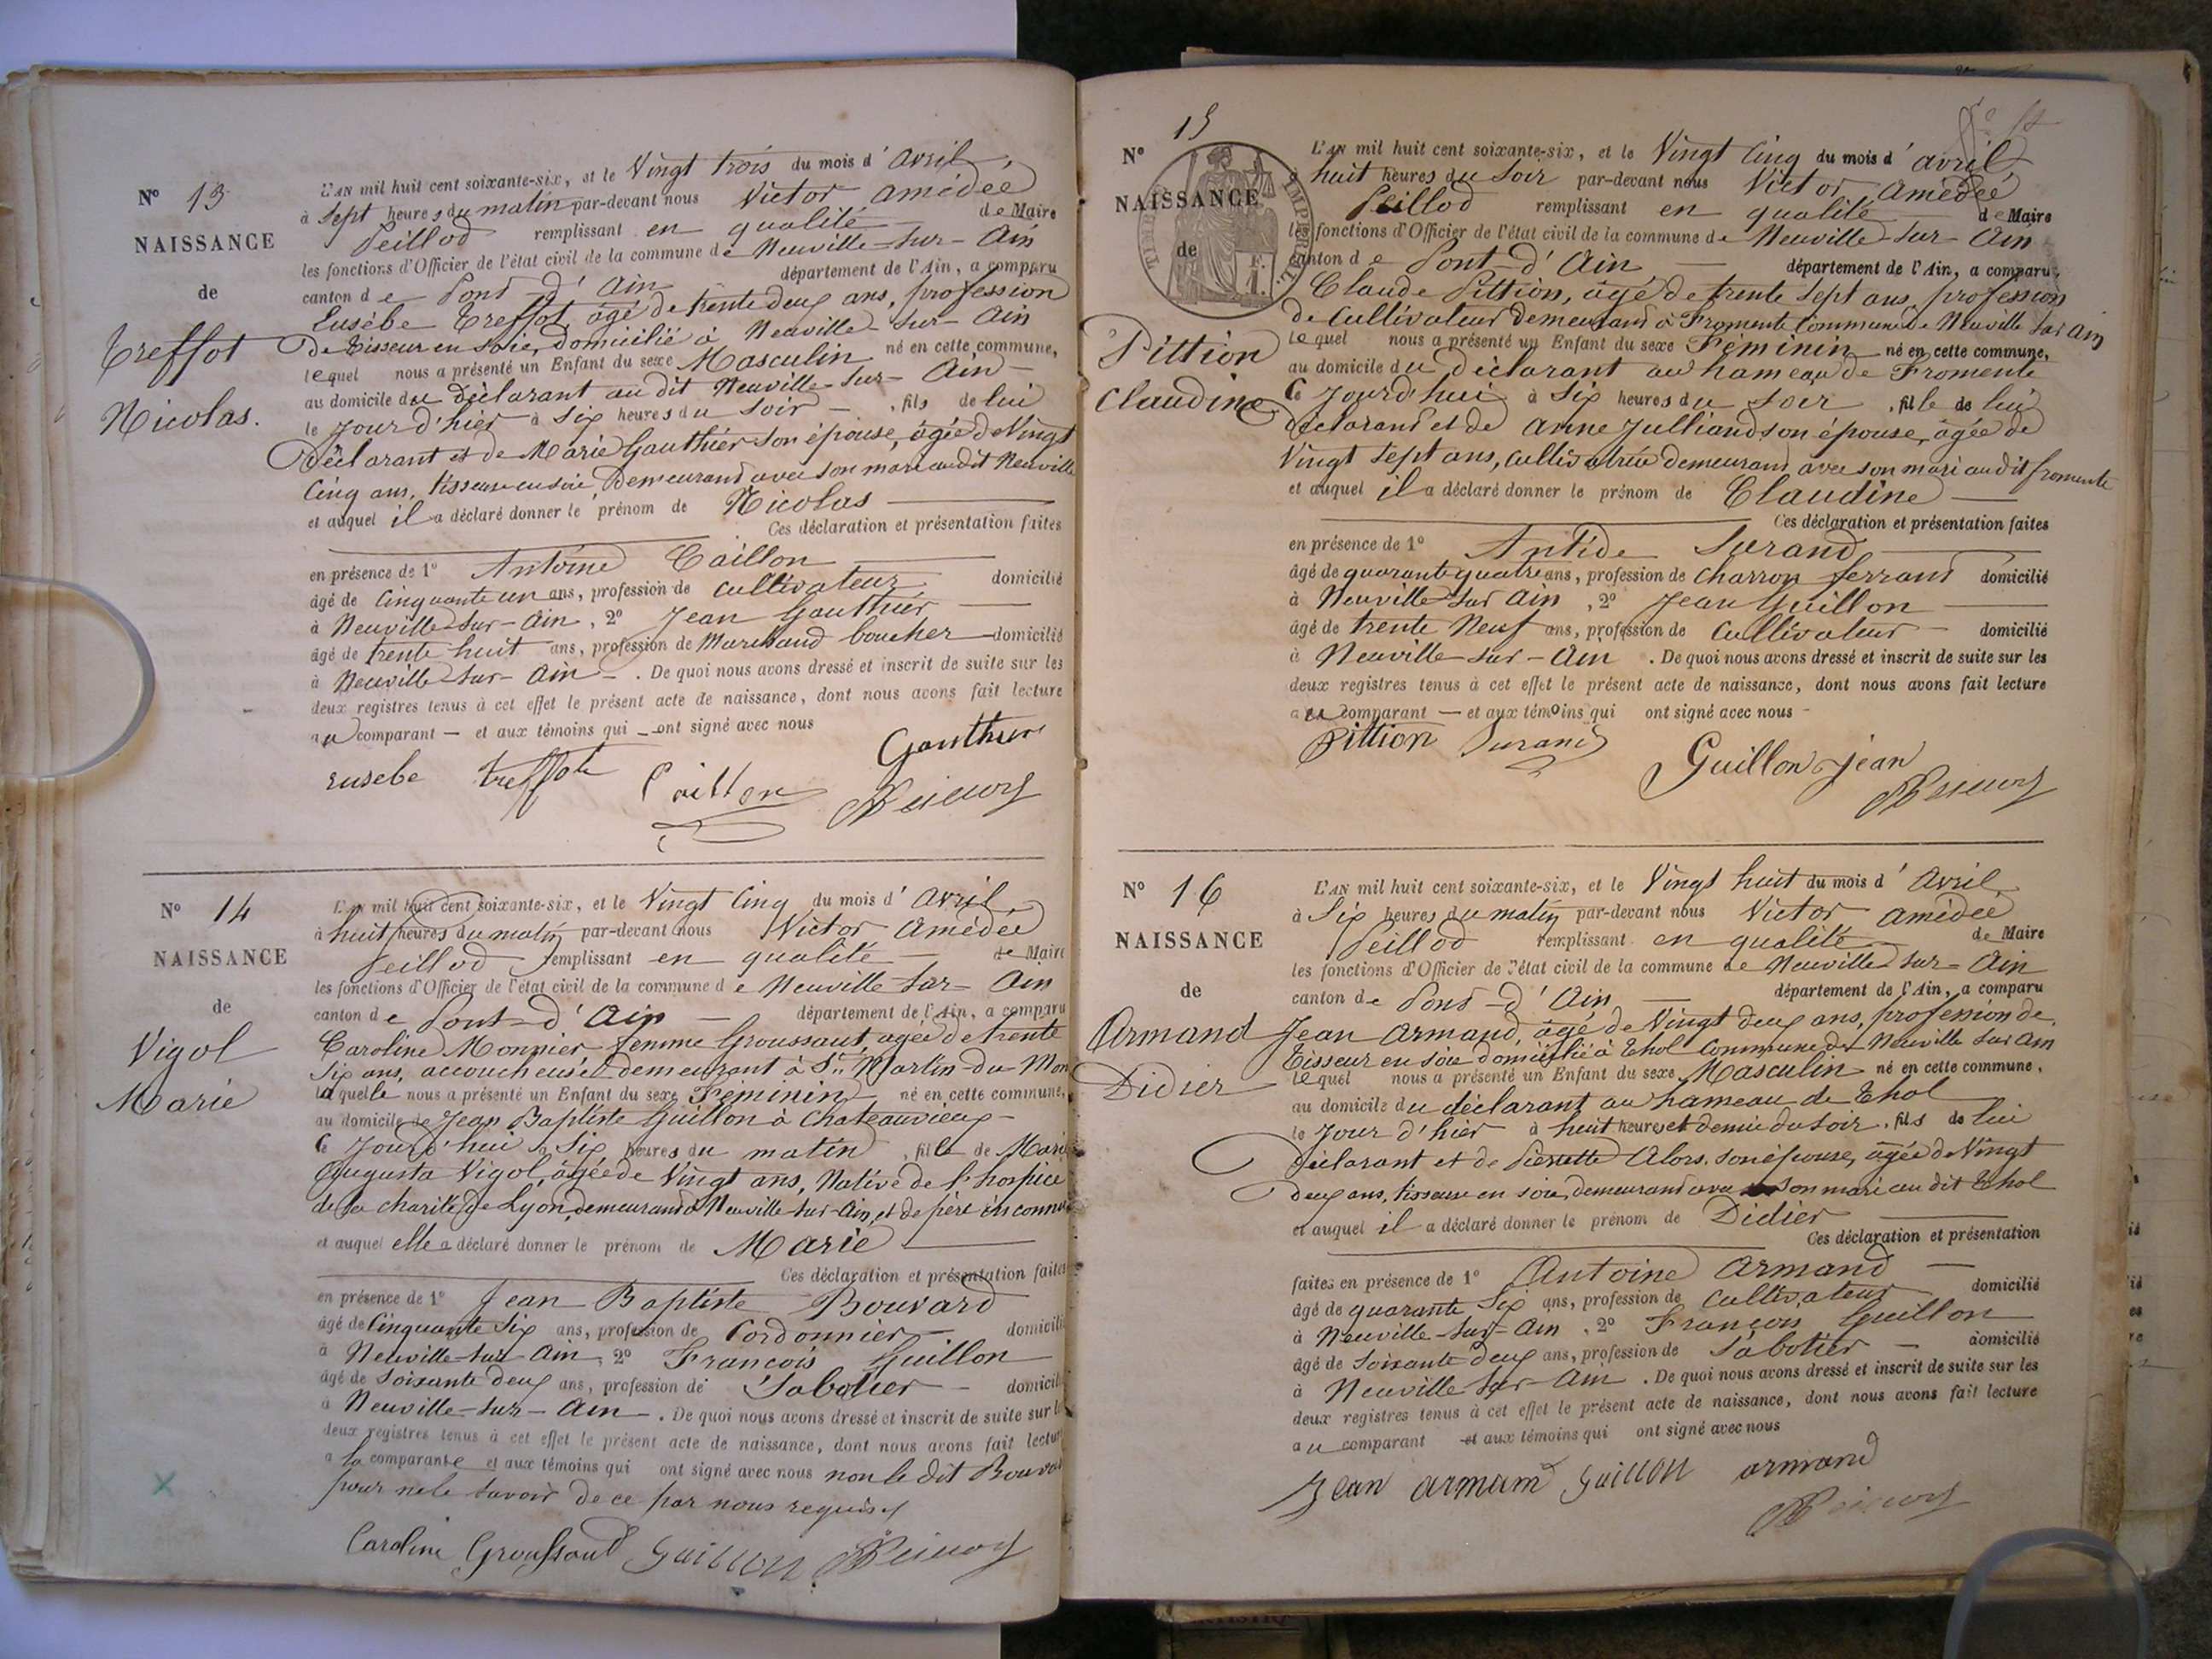 N° 13
NAISSANCE
de
Treffot
Nicolas.
L'AN mil huit cent soixante-six, et le Vingt trois du mois d'avril,
à Sept heures du matin par-devant nous Victor amédée
Peillod remplissant en qualité de Maire
les fonctions d'Officier de l'état civil de la commune de Neuville-sur-Ain
canton de Pont-d'Ain département de l'Ain, a comparu
Eusèbe Treffot, âgé de trente deux ans, profession
De tisseur en soie, domicilié à Neuville-sur-Ain
lequel nous a présenté un Enfant du sexe Masculin né en cette commune,
au domicile du déclarant au dit Neuville-sur-Ain
le jour d'hier à six heures du soir, fils de lui
Déclarant et de Marie Gauthier son épouse, âgée de Vingt
Cinq ans, tisseuse en soie, demeurand avec son mari audit Neuville
et auquel il a déclaré donner le prénom de Nicolas
Ces déclaration et présentation faites
en présence de 1° Antoine Caillon
âgé de Cinquante un ans, profession de Cultivateur domicilié
à Neuville-sur-Ain, 2° Jean Gauthier
âgé de trente huit ans, profession de Marchand boucher domicilié
à Neuville-sur-Ain. De quoi nous avons dressé et inscrit de suite sur les
deux registres tenus à cet effet le présent acte de naissance, dont nous avons fait lecture
au comparant et aux témoins qui ont signé avec nous
Gauthier
eusebe treffot Caillon
N° 14
NAISSANCE
de
Vigol
Marie
L'AN mil huit cent soixante-six, et le Vingt Cinq du mois d'avril,
à huit heures du matin par-devant nous Victor Amédée
Peillod remplissant en qualité de Maire
les fonctions d'Officier de l'état civil de la commune de Neuville-sur-Ain
canton de Pont-d'Ain département de l'Ain, a comparu
Caroline Monnier femme Groussaut, agée de trente
Six ans, accoucheuse demeurant à St Martin-du-Mon
laquelle nous a présenté un Enfant du sexe Féminin né en cette commune,
au domicile de Jean Baptiste Guillon à Chateauvieux
Ce Jourd'hui à Six heures du matin, fille de Marie
Augusta Vigol, âgée de Vingt ans, Native de l'hospice
de la charité de Lyon, demeurand à Neuville-sur-Ain, et de père inconnu
et auquel elle a déclaré donner le prénom de Marie
Ces déclaration et présentation faites
en présence de 1° Jean Baptiste Bouvard
âgé de Cinquante Six ans, profession de Cordonnier domicilié
à Neuville-sur-Ain, 2° François Guillon
âgé de Soixante deux ans, profession de Sabotier domicilié
à Neuville-sur-Ain. De quoi nous avons dressé et inscrit de suite sur les
deux registres tenus à cet effet le présent acte de naissance, dont nous avons fait lecture
a la comparante et aux témoins qui ont signé avec nous non le dit Bouvard
pour ne le savoir de ce par nous requis
Caroline Groussaud Guillon
15
N°
NAISSANCE
de
TIMBRE IMPERIAL
Pittion
Claudine
L'AN mil huit cent soixante-six, et le Vingt Cinq du mois d'avril
à huit heures du Soir par-devant nous Victor Amédée
Peillod remplissant en qualité de Maire
les fonctions d'Officier de l'état civil de la commune de Neuville-sur-Ain
canton de Pont-d'Ain département de l'Ain, a comparu,
Claude Pittion, âgé de trente Sept ans, profession
de Cultivateur demeurand à Fromente Commune de Neuville sur ain
lequel nous a présenté un Enfant du sexe Féminin né en cette commune,
au domicile du déclarant au hameau de Fromente
Ce Jourd'hui à Six heures du soir, fille de lui
Déclarand et de Anne Julliand son épouse, âgée de
Vingt Sept ans, cultivatrice demeurand avec son mari au dit fromente
et auquel il a déclaré donner le prénom de Claudine
Ces déclaration et présentation faites
en présence de 1° Antide Durand
âgé de quarante quatre ans, profession de Charron ferrant domicilié
à Neuville sur Ain, 2° Jean Guillon
âgé de trente Neuf ans, profession de Cultivateur domicilié
à Neuville-sur-Ain. De quoi nous avons dressé et inscrit de suite sur les
deux registres tenus à cet effet le présent acte de naissance, dont nous avons fait lecture
au comparant et aux témoins qui ont signé avec nous
pittion Durand
Guillon jean
N° 16
NAISSANCE
de
Armand
Didier
L'AN mil huit cent soixante-six, et le Vingt huit du mois d'Avril,
à Six heures du matin par-devant nous Victor amédée
Peillod remplissant en qualité de Maire
les fonctions d'Officier de l'état civil de la commune de Neuville-sur-Ain
canton de Pont-d'Ain département de l'Ain, a comparu
Jean Armand, âgé de Vingt deux ans, profession de
Tisseur en soie domicilié à Thol Commune de Neuville sur ain
lequel nous a présenté un Enfant du sexe Masculin né en cette commune,
au domicile du déclarant au hameau de Thol
le jour d'hier à huit heures et demie du soir, fils de lui
Déclarant et de Pierrette Alors son épouse, agée de Vingt
deux ans, tisseuse en soie, demeurand avec son mari au dit Thol
et auquel il a déclaré donner le prénom de Didier
Ces déclaration et présentation
faites en présence de 1° Antoine Armand
âgé de quarante Six ans, profession de Cultivateur domicilié
à Neuville-sur-Ain, 2° François Guillon
âgé de Soixante deux ans, profession de Sabotier domicilié
à Neuville-sur-Ain. De quoi nous avons dressé et inscrit de suite sur les
deux registres tenus à cet effet le présent acte de naissance, dont nous avons fait lecture
au comparant et aux témoins qui ont signé avec nous
Jean armand Guillon armand